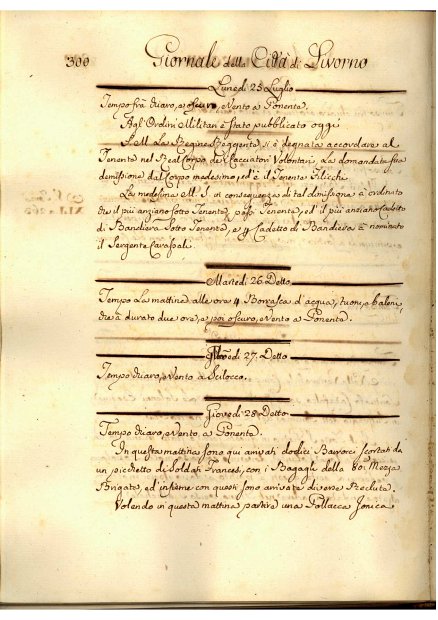 300 Giornale della Città di Livorno
Lunedi 25 Luglio
Tempo frà chiaro, e oscuro, e Vento a Ponente.
Agl'Ordini Militari è stato pubblicato oggi
S. M. La Regina Reggente, si è degnata accordare al
Tenente nel Real Corpo de' Cacciatori Volontari, La domandata sua
demissione dal Corpo medesimo, ed è il Tenente
La medesima M. S. in conseguenza di tal dimissione à ordinato
che il più anziano Sotto Tenente, passi Tenente, ed il più anziano Cadetto
di Bandiera Sotto Tenente, e p Cadetto di Bandiera à nominato
il Sergente
Martedi 26. Detto
Tempo La mattina alle ore 4 Borrasca d'acqua, tuoni, e baleni,
che à durato due ore, e poi oscuro, e Vento a Ponente.
Mercoledi 27. Detto
Tempo chiaro, e Vento a Scilocco.
Giovedi 28 Detto
Tempo chiaro, e Vento, a Ponente.
In questa mattina sono qui arrivati dodici Barrocci scortati da
un picchetto di Soldati Francesi, con i Bagagli della 80. Mezza
Brigata, ed insieme con questi sono arrivate diverse Reclute.
Volendo in questa mattina partire una Pollacca Jonica